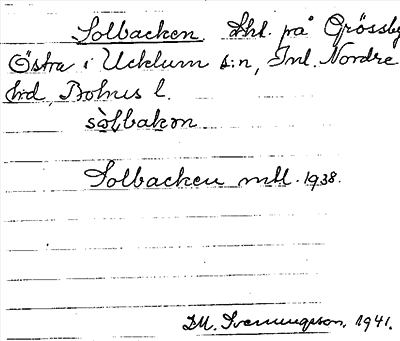 Solbacken. Lht. på Grössby
Östra i Ucklum s:n, Inl. Nordre
hrd, Bohus l.
sòlbakǝn
Solbacken mtl. 1938.
M. Svenningsson. 1941.